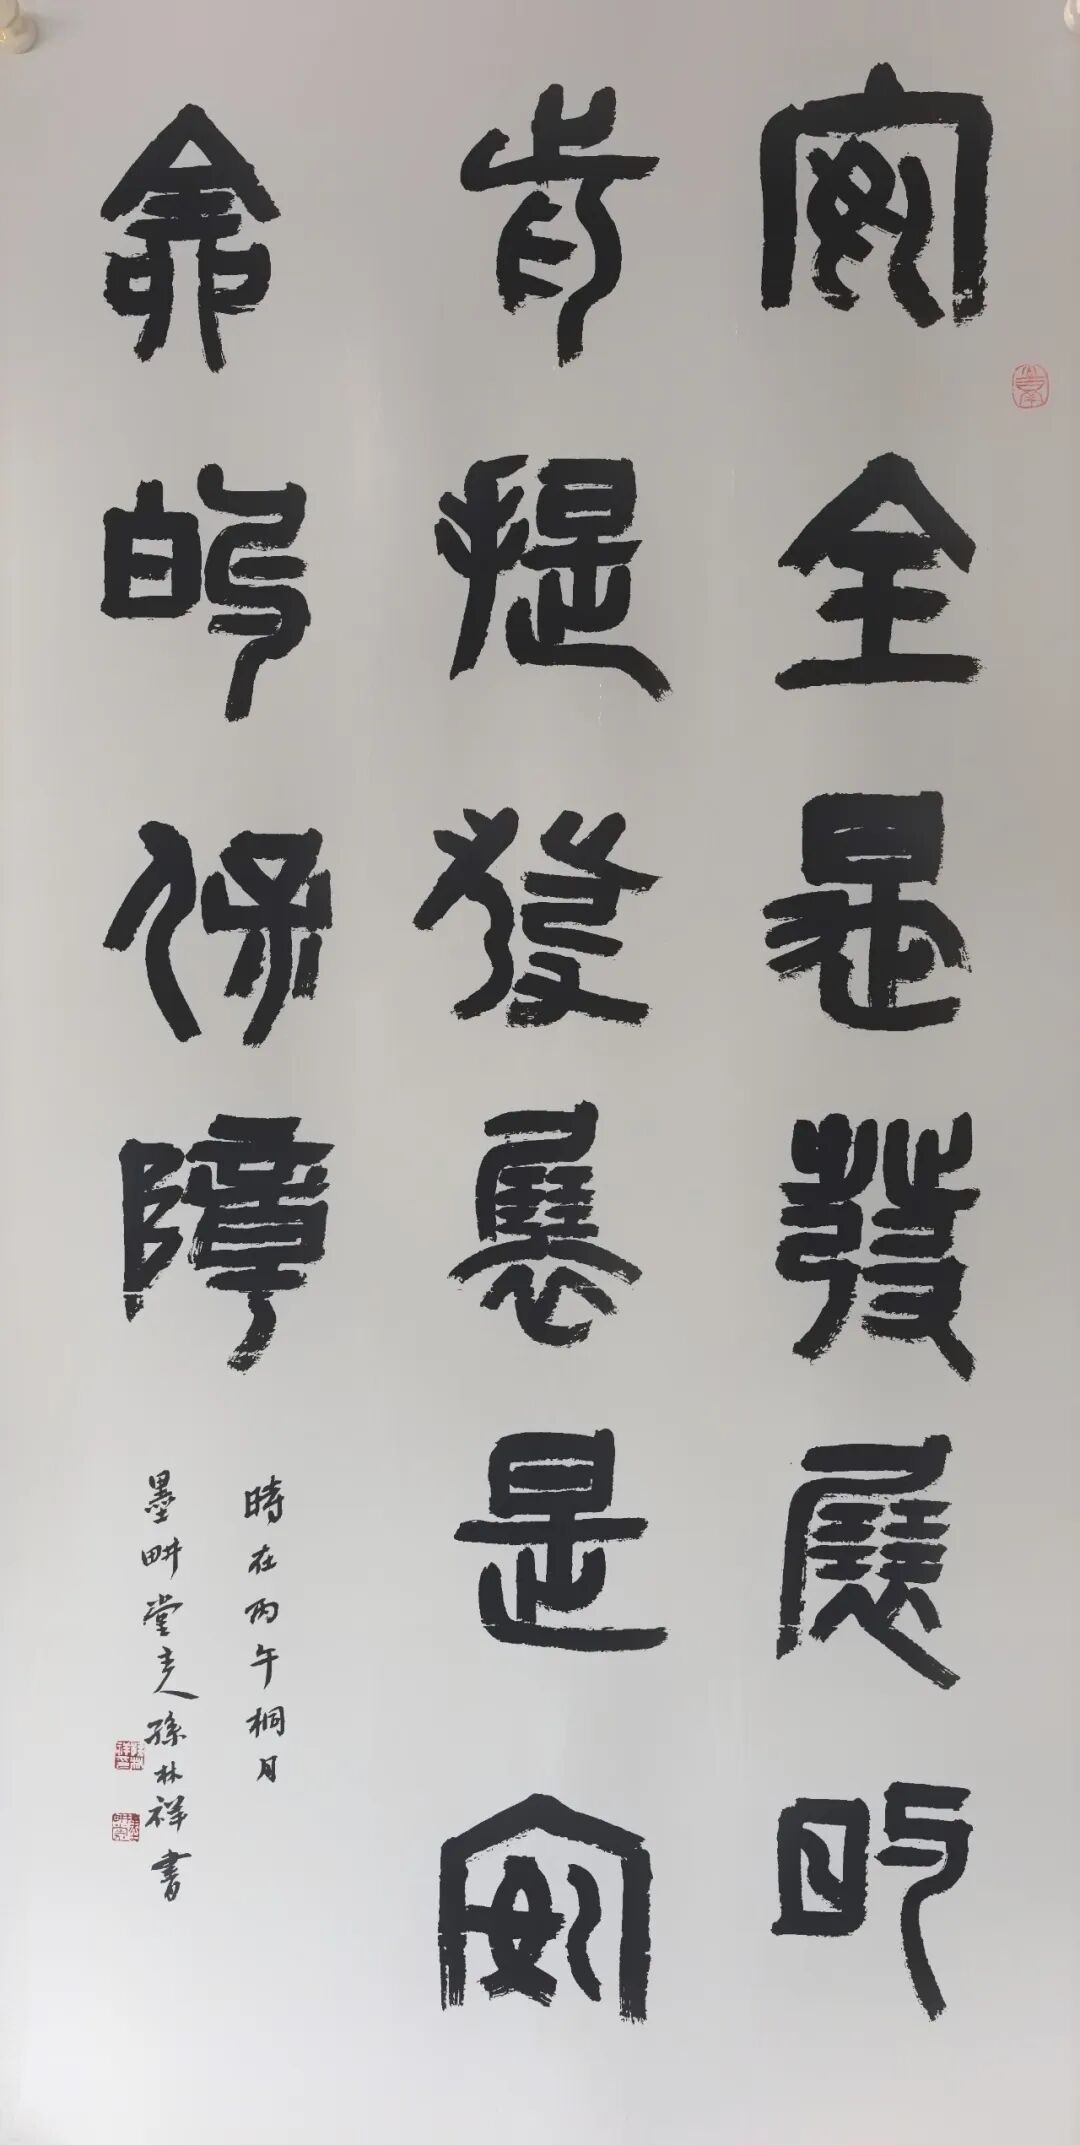 安全是發展的
前提發展是安
全的保障
時在丙午桐月
墨畊堂主人孫林祥書